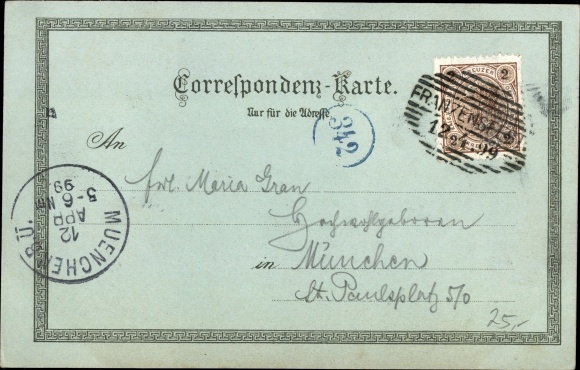 Correspondenz-Karte.
Nur für die Adresse.
2 KREUZER 2
FRANZENSF
12 4 99
342
An
Frl. Maria Gran
Hochwohlgeboren
in München
St. Paulsplatz 5/0
MUENCHEN B.Ü.
12
APR
5-6 N
99
25,-